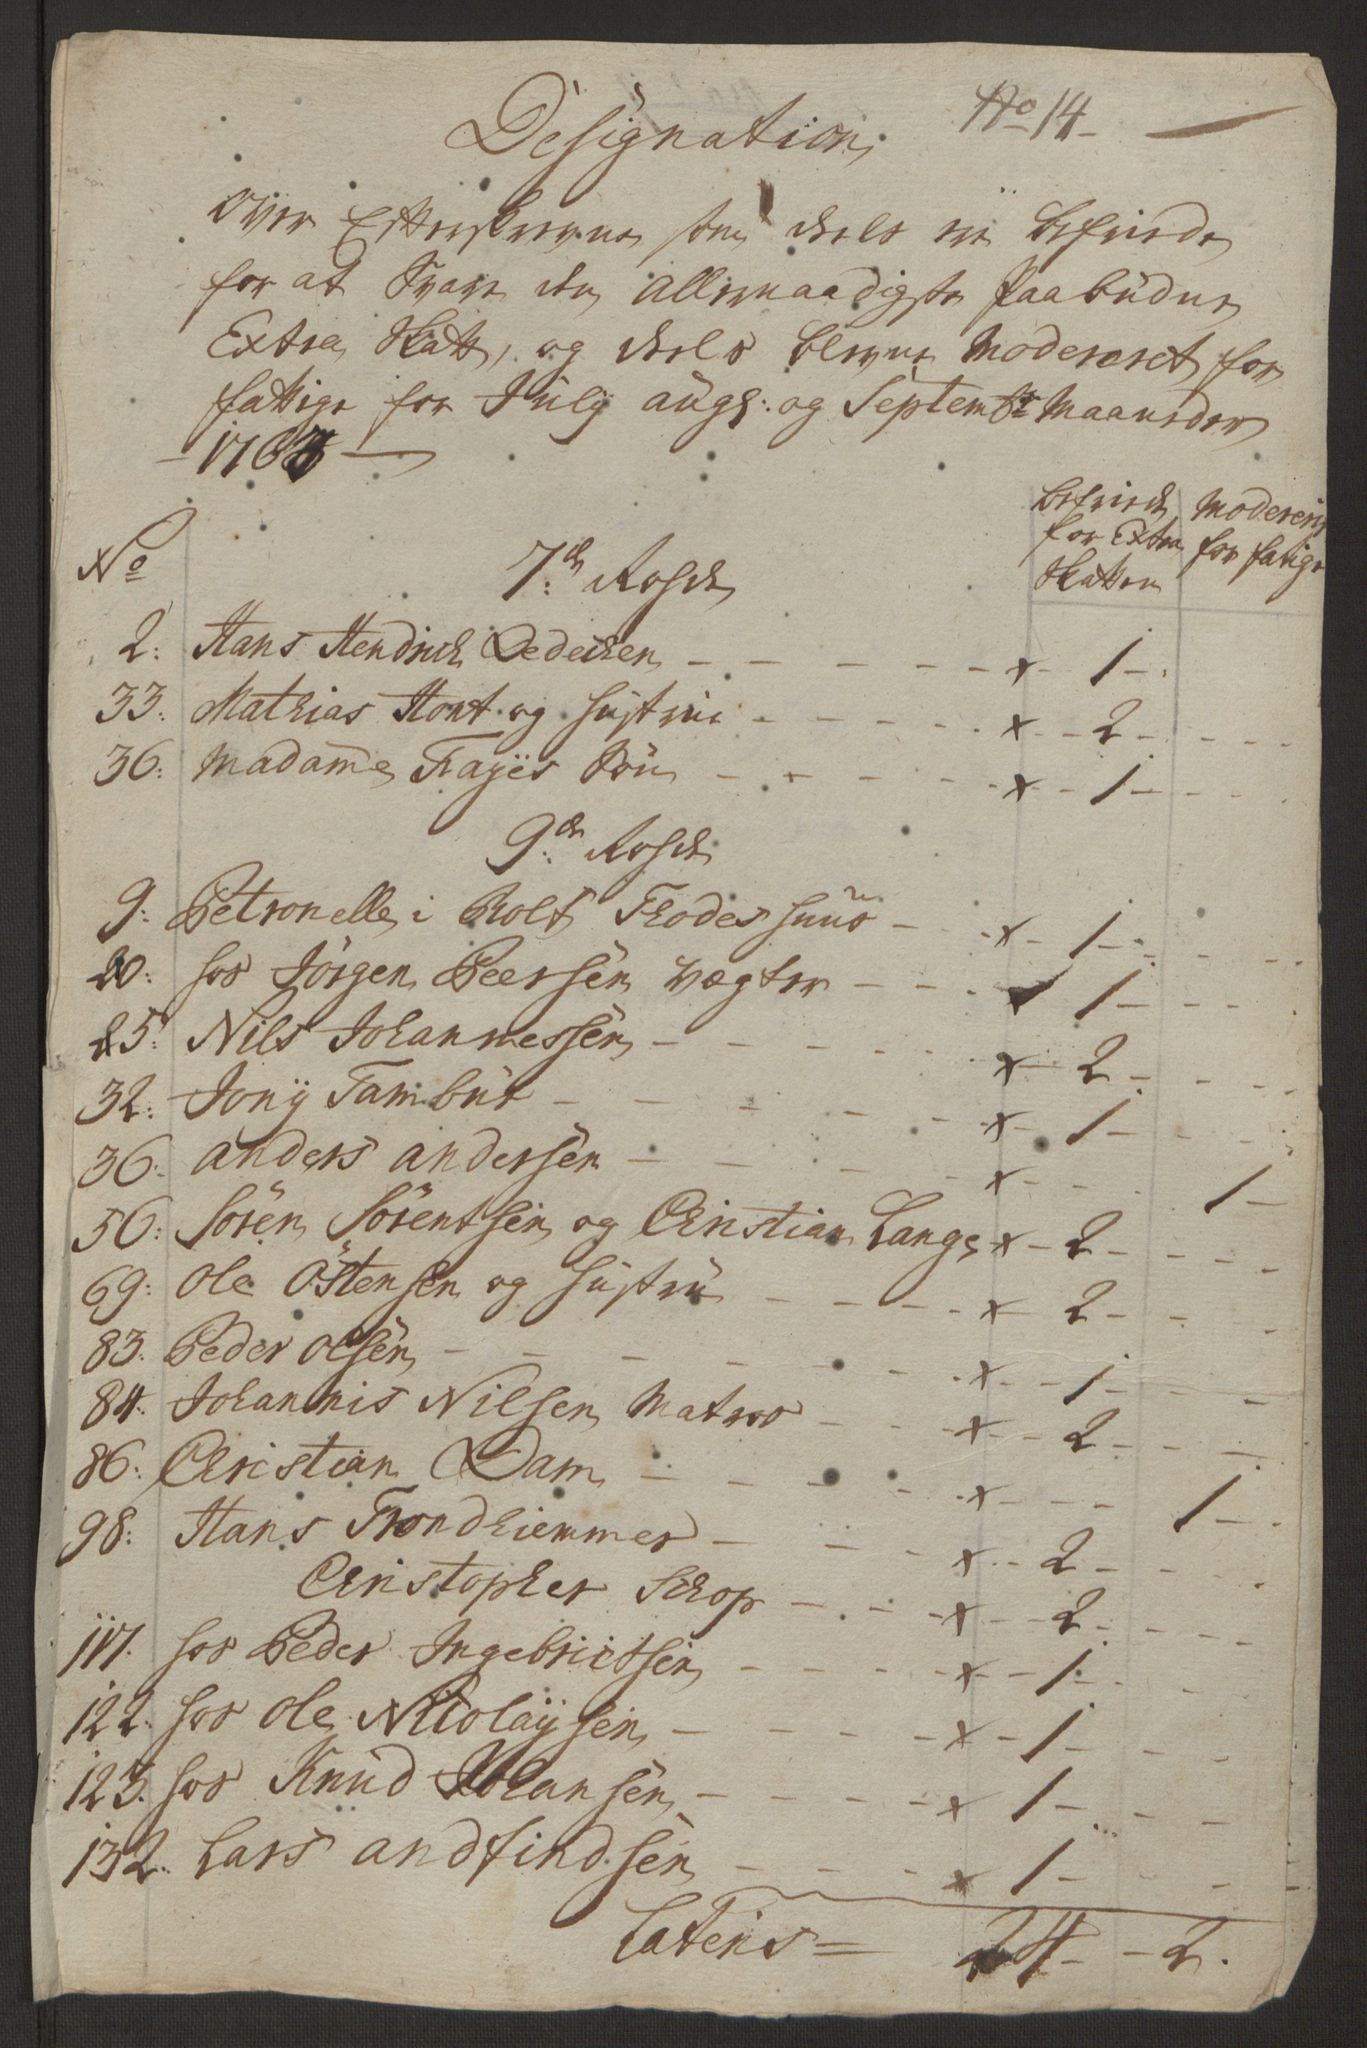 No 14
Designation
Over Efterskrevne som deels ere befriede
for at svare den allernaadigste Paabudne
Extra Skatt, og deels blevne Modereret for
fattige for July augl: og Septembr Maaneder
1763
No
befriede for Extra Skatten
Moderering for fatige
7de Rode
2: Hans Hendrich Dedechen x 1
33: Mathias Hont og hustrue x 2
36: Madame Fayes x 1
9de Rode
9: Petronelle i Rolf Thodes huus x 1
20: hos Jörgen Peersen vægter 1
25: Nils Johannessen x 2
32: Jony Tambur x 1
36: anders andersen x 1
56: Sören Sörentsen og Christian Lange x 2
69: Ole Östensen og hustrü x 2
83: Peder olsen x 1
84: Johannis Nilsen Matros x 2
86: Christian Dam x 1
98: Hans Trondhiemmer x 2
Christopher Schop x 2
117. hos Peder Ingebrictsen x 1
122. hos Ole Nicolaysen x 1
123. hos Knud Johansen x 1
132. Lars andfindsen x 1
Latens = 24 - 2.